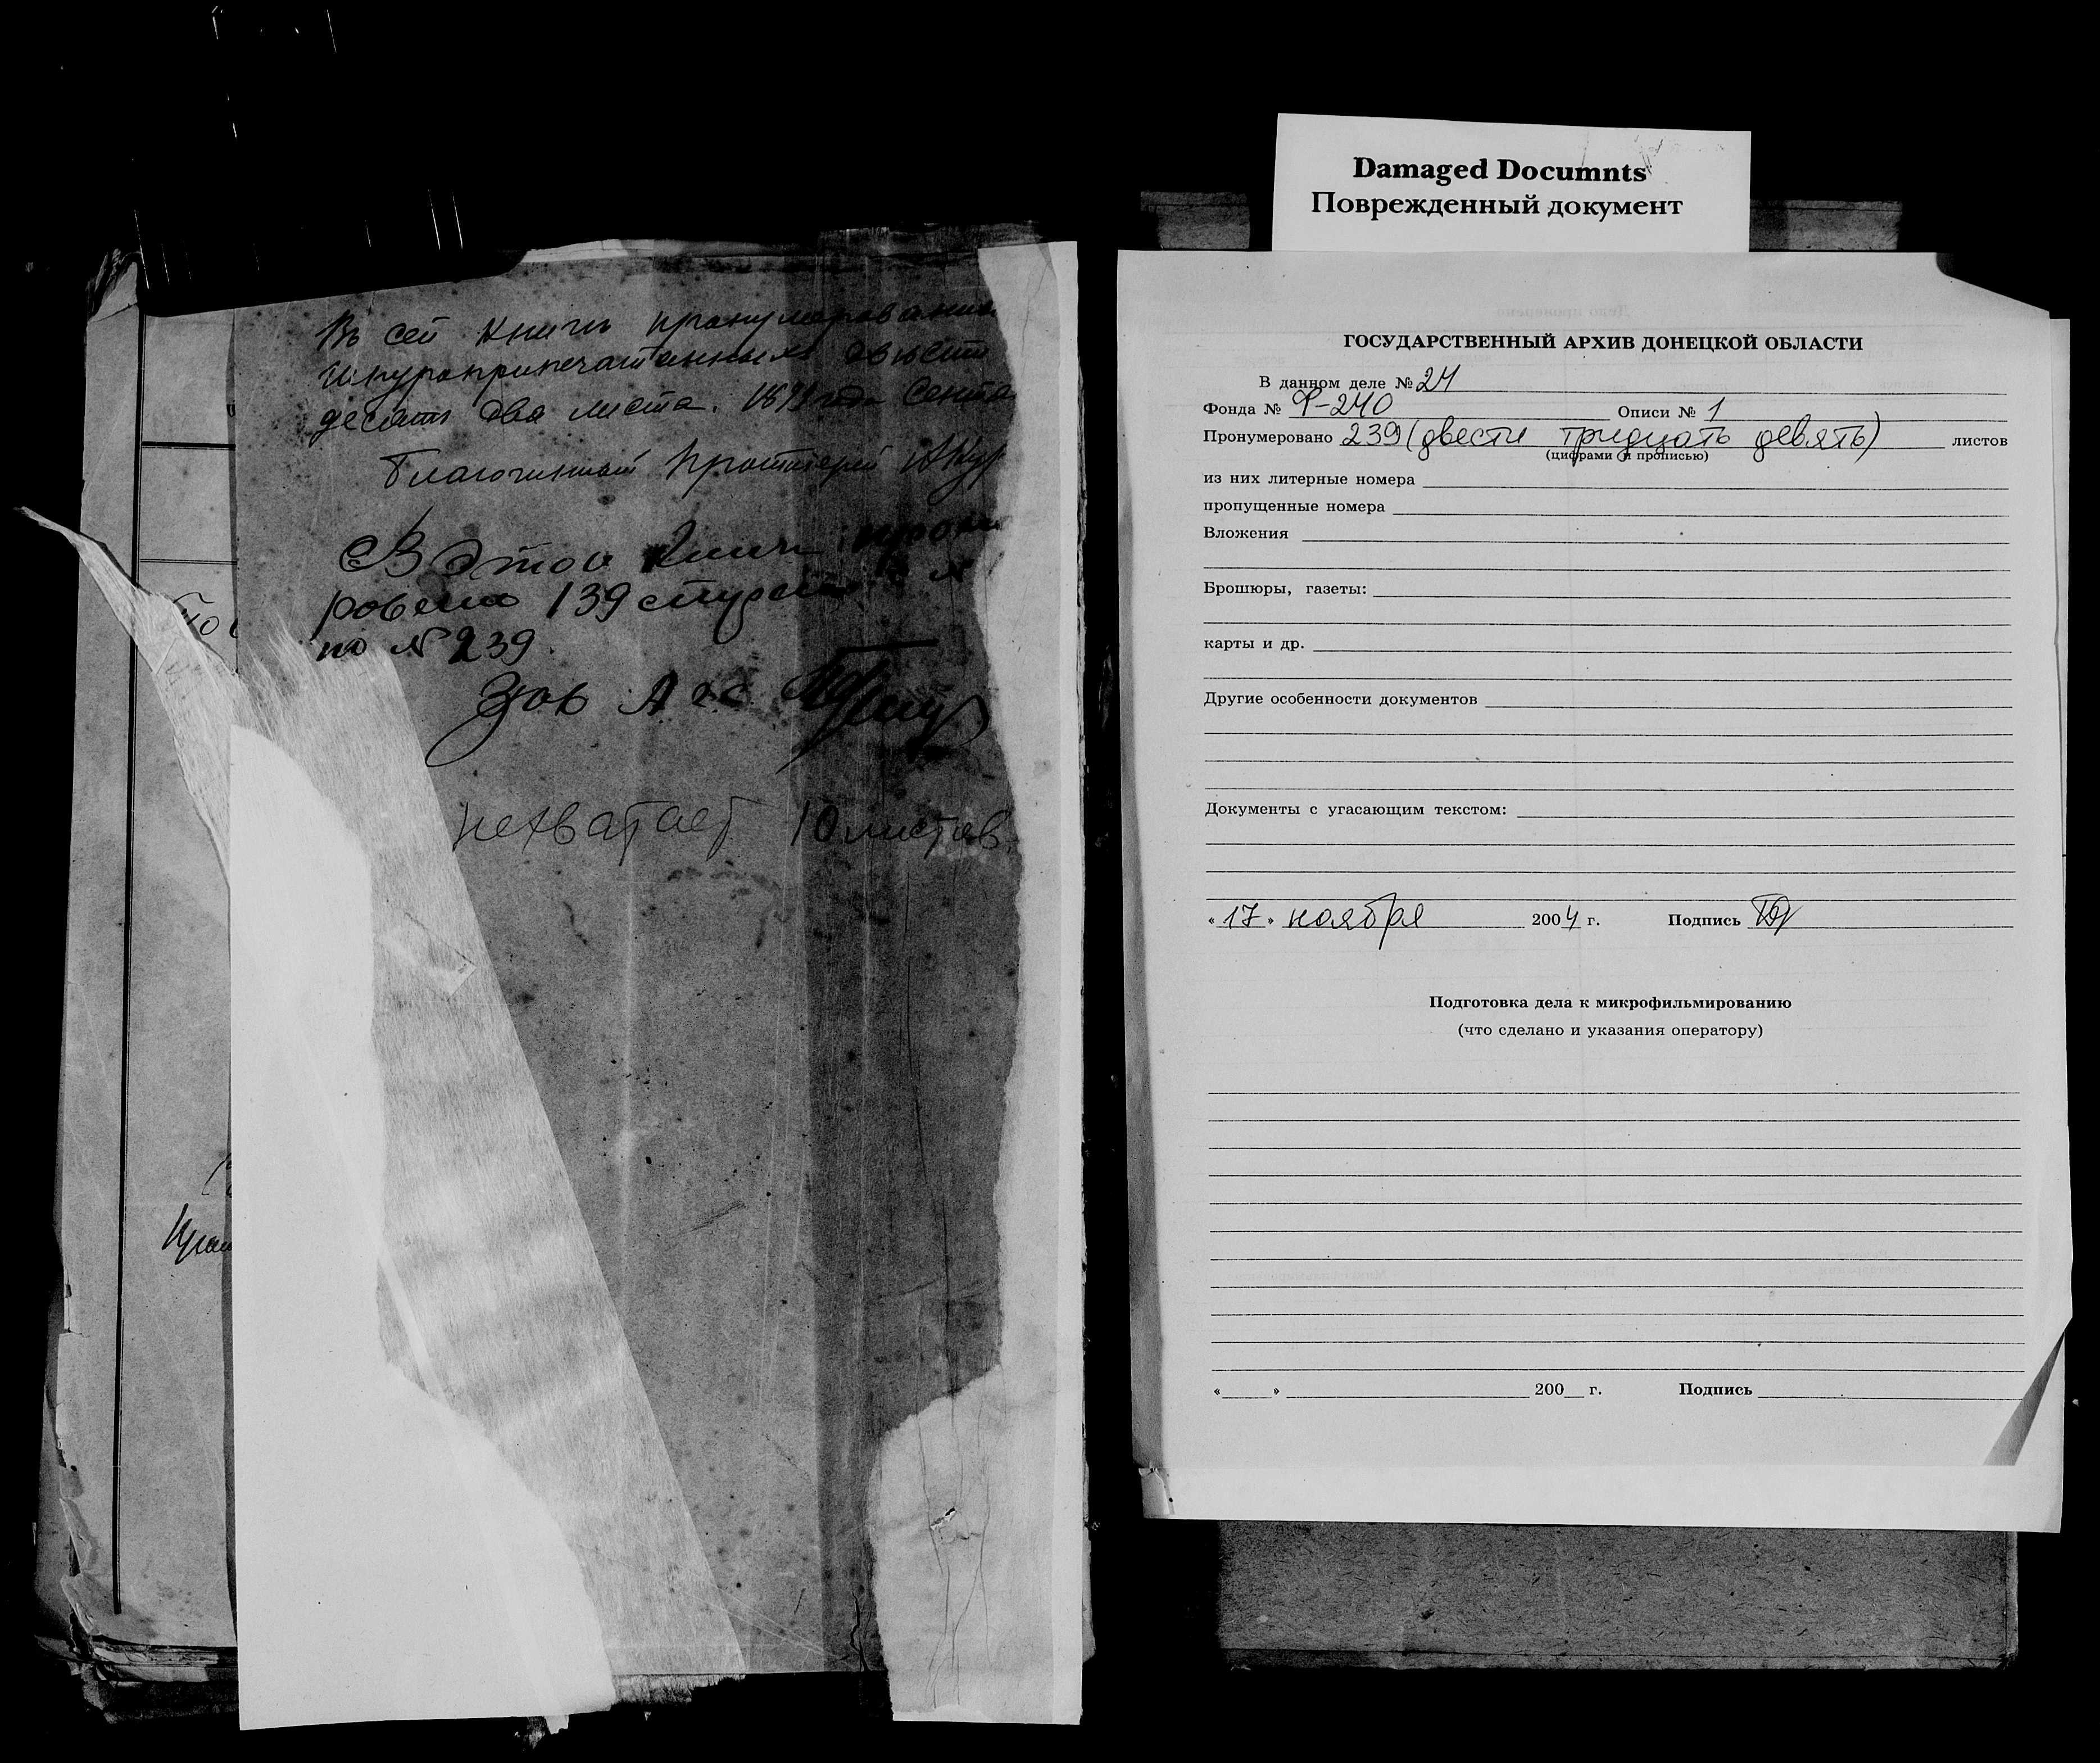 Въ сей книгѣ пронумерованны
шнуроприпечатанныхъ двѣсти
десять два листа. 187 года Сентя
Благочинный Протоіерей
В этой книги прону
ровано 139 
по № 239.
Зав
нехватает 10 листов
Damaged Documnts
Поврежденный документ
ГОСУДАРСТВЕННЫЙ АРХИВ ДОНЕЦКОЙ ОБЛАСТИ
В данном деле № 24
Фонда № Ф-240 Описи № 1
Пронумеровано 239 (двести тридцать девять) листов
(цифрами и прописью)
из них литерные номера
пропущенные номера
Вложения
Брошюры, газеты:
карты и др.
Другие особенности документов
Документы с угасающим текстом:
« 17 » ноября 2004 г. Подпись
Подготовка дела к микрофильмированию
(что сделано и указания оператору)
« » 200 г. Подпись